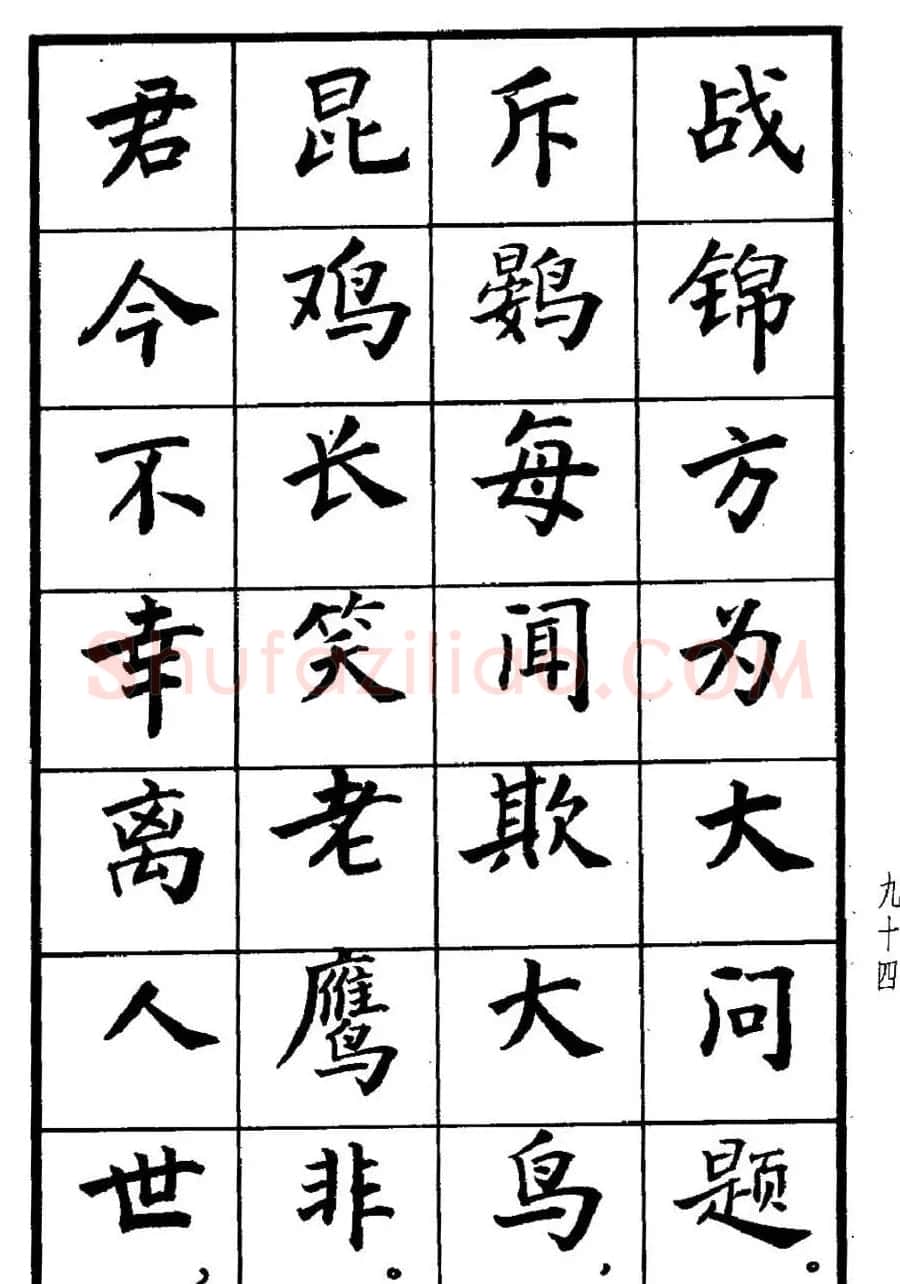 战锦方为大问题。
斥鷃每闻欺大鸟，
昆鸡长笑老鹰非。
君今不幸离人世，
九十四
Shufaziliao.COM